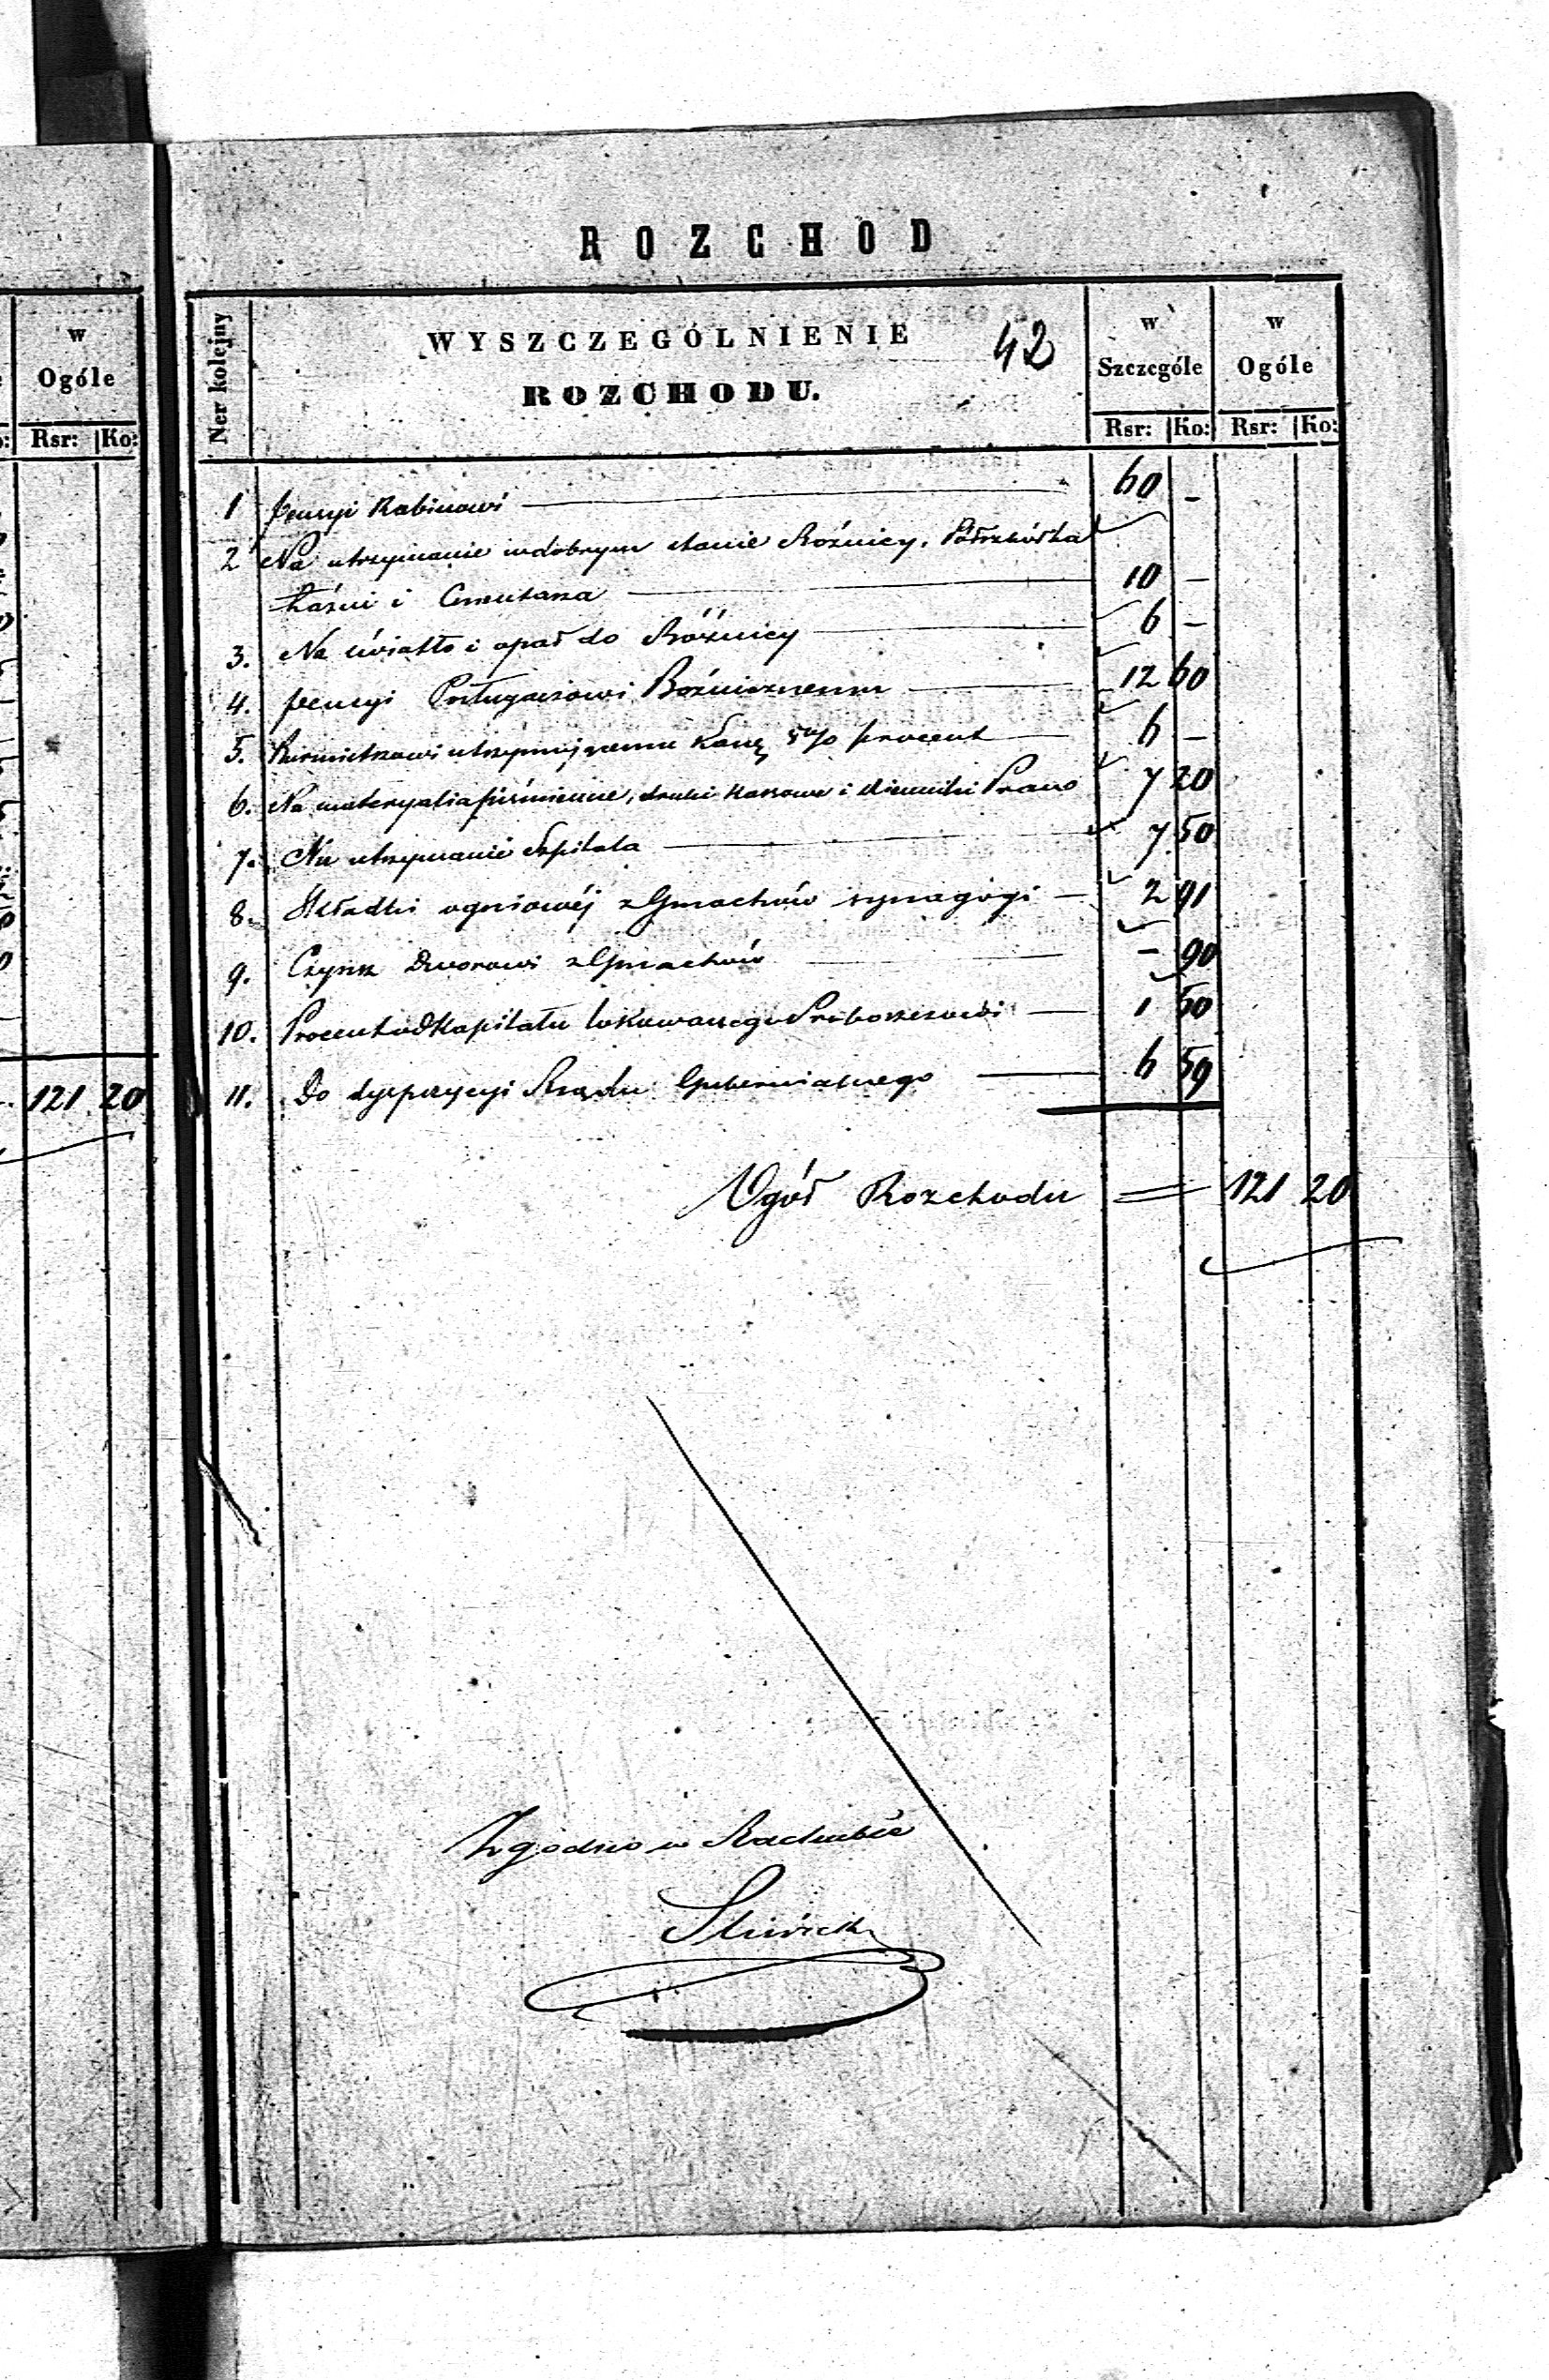 w
Ogóle
Rsr: Ko:
121 20
ROZCHÓD
Ner kolejny
WYSZCZEGÓLNIENIE
ROZCHODU.
42
w Szczególe
w Ogóle
Rsr: Ko: Rsr: Ko:
1 pensyi Rabinowi 60 –
2 Na utrzymanie w dobrym stanie Bóżnicy,
Łaźni i Cmentarza 10 –
3. Na światło i opał do Bóżnicy 6 –
4. pensyi Posługaczowi Bóźnicznemu 12 60
5. utrzymującemu Kassę 5% procent 6 –
6. Na materyalia piśmienne, druki kassowe i dzienniki Praw 7 20
7. Na utrzymanie Szpitala 7 50
8. Składki ogniowéj z Gmachów synagogi 2 91
9. Czynsz Dworowi z Gmachów – 90
10. Procent od Kapitału lokowanego Proboszczowi 1 50
11. Do dyspozycyi Rządu Gubernialnego 6 59
Ogół Rozchodu = 121 20
Zgodno w Rachubie